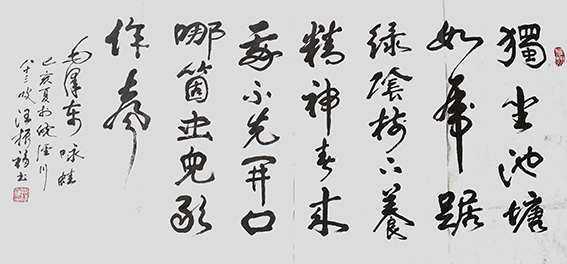 獨坐池塘
如虎踞
綠陰樹下養
精神春來
我不先開口
哪箇虫兒敢
作聲
毛澤東 咏蛙
己亥夏於皖涇川
八十三叟汪振書